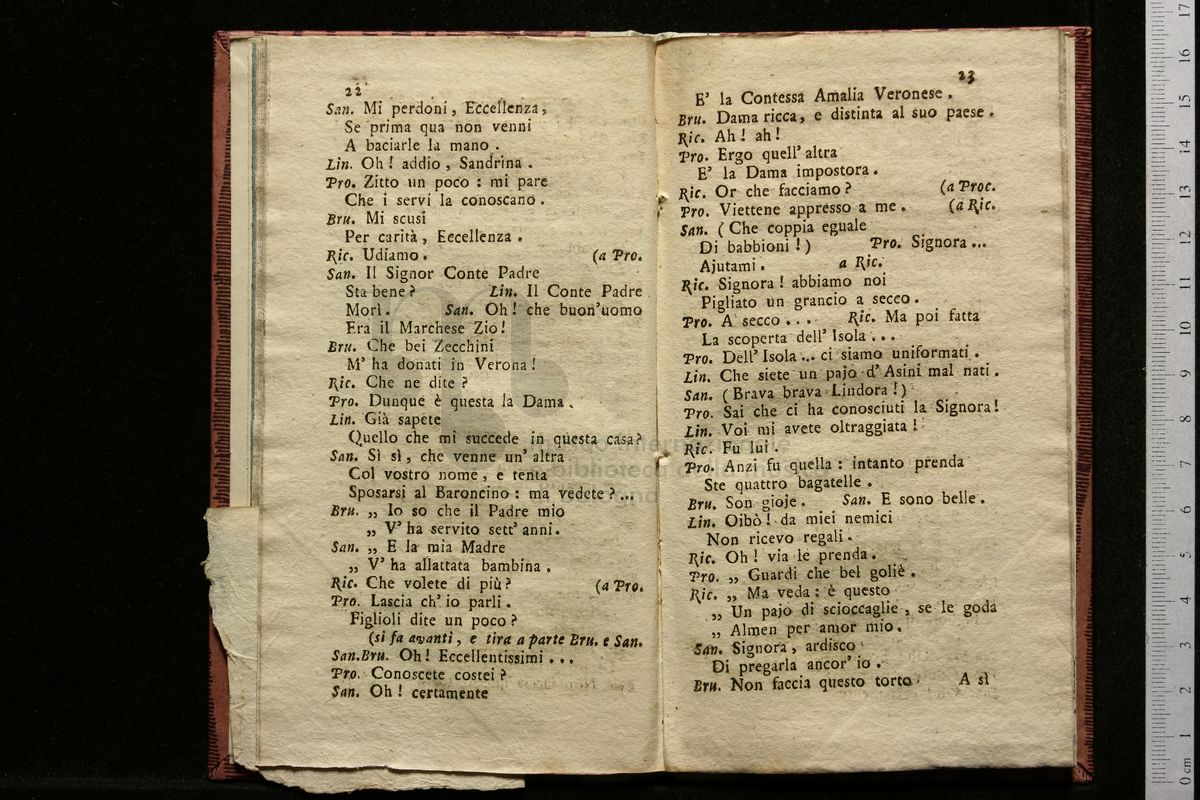 22
San. Mi perdoni, Eccellenza,
Se prima qua non venni
A baciarle la mano.
Lin. Oh! addio, Sandrina.
Pro. Zitto un poco: mi pare
Che i servi la conoscano.
Bru. Mi scusi
Per carità, Eccellenza.
Ric. Udiamo. (a Pro.
San. Il Signor Conte Padre
Sta bene? Lin. Il Conte Padre
Morì. San. Oh! che buon'uomo
Era il Marchese Zio!
Bru. Che bei Zecchini
M'ha donati in Verona!
Ric. Che ne dite?
Pro. Dunque è questa la Dama.
Lin. Già sapete
Quello che mi succede in questa casa?
San. Sì sì, che venne un'altra
Col vostro nome, e tenta
Sposarsi al Baroncino: ma vedete?...
Bru. „ Io so che il Padre mio
„ V'ha servito sett'anni.
San. „ E la mia Madre
„ V'ha allattata bambina.
Ric. Che volete di più? (a Pro.
Pro. Lascia ch'io parli.
Figlioli dite un poco?
(si fa avanti, e tira a parte Bru. e San.
San.Bru. Oh! Eccellentissimi...
Pro. Conoscete costei?
San. Oh! certamente
23
E' la Contessa Amalia Veronese.
Bru. Dama ricca, e distinta al suo paese.
Ric. Ah! ah!
Pro. Ergo quell'altra
E' la Dama impostora.
Ric. Or che facciamo? (a Proc.
Pro. Viettene appresso a me. (a Ric.
San. (Che coppia eguale
Di babbioni!) Pro. Signora...
Ajutami. a Ric.
Ric. Signora! abbiamo noi
Pigliato un grancio a secco.
Pro. A secco.... Ric. Ma poi fatta
La scoperta dell'Isola...
Pro. Dell'Isola... ci siamo uniformati.
Lin. Che siete un pajo d'Asini mal nati.
San. (Brava brava Lindora!)
Pro. Sai che ci ha conosciuti la Signora!
Lin. Voi mi avete oltraggiata!
Ric. Fu lui.
Pro. Anzi fu quella: intanto prenda
Ste quattro bagatelle.
Bru. Son gioje. San. E sono belle.
Lin. Oibò! da miei nemici
Non ricevo regali.
Ric. Oh! via le prenda.
Pro. „ Guardi che bel goliè.
Ric. „ Ma veda: è questo
„ Un pajo di scioccaglie, se le goda
„ Almen per amor mio.
San. Signora, ardisco
Di pregarla ancor'io.
Bru. Non faccia questo torto
A sì